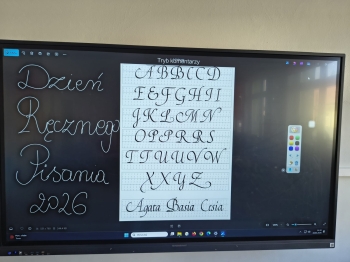 Tryb komentarzy
Dzień
Ręcznego
Pisania
2026
A B B C C D
E E F G H I I
J K L M N
O P P R R S
T T U U V W
X X Y Z
Agata Basia Cesia